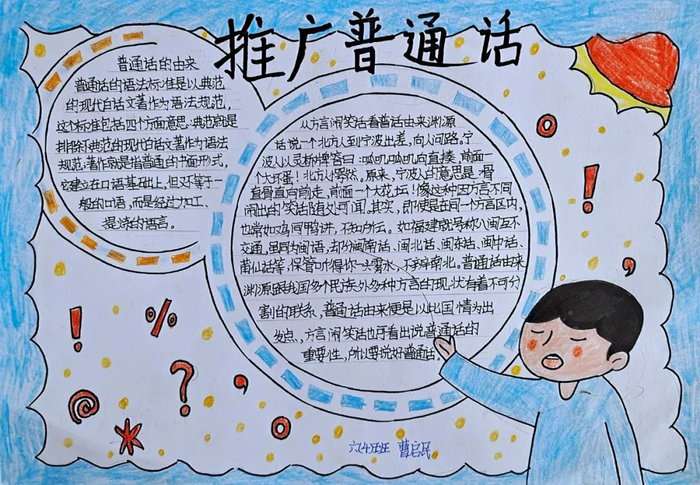 推广普通话
普通话的由来
普通话的语法标准是以典范
的现代白话文著作为语法规范,
这个标准包括四个方面意思:典范就是
排除不典范的现代白话文著作为语法
规范;著作就是指普通的书面形式,
它建立在口语基础上,但又不等于一
般的口语,而是经过加工、
提炼的语言。
从方言闹笑话看普话由来渊源
话说一个北方人到宁波出差,向人问路。宁
波人以灵桥牌答曰:
一个大坏蛋!北方人愕然。原来,宁波人的意思是:骨
直骨直向前走,前面一个大花坛!像这种因方言不同
闹出的笑话随处可闻。其实,即使是在同一个方言区内,
也常如鸡同鸭讲,不知所云。如福建就号称八闽互不
交通,虽同为闽语,却分闽南话、闽北话、闽东话、闽中话、
莆仙话等,保管叫你得一头雾水,不辨南北。普通话由来
渊源跟我国多民族外多种方言的现状有着不可分
割的联系,普通话由来便是以此国情为出
发点,方言闹笑话也可看出说普通话的
重要性,所以要说好普通话。
! % @ * ? , 。
。 ! ,
班 曹启民